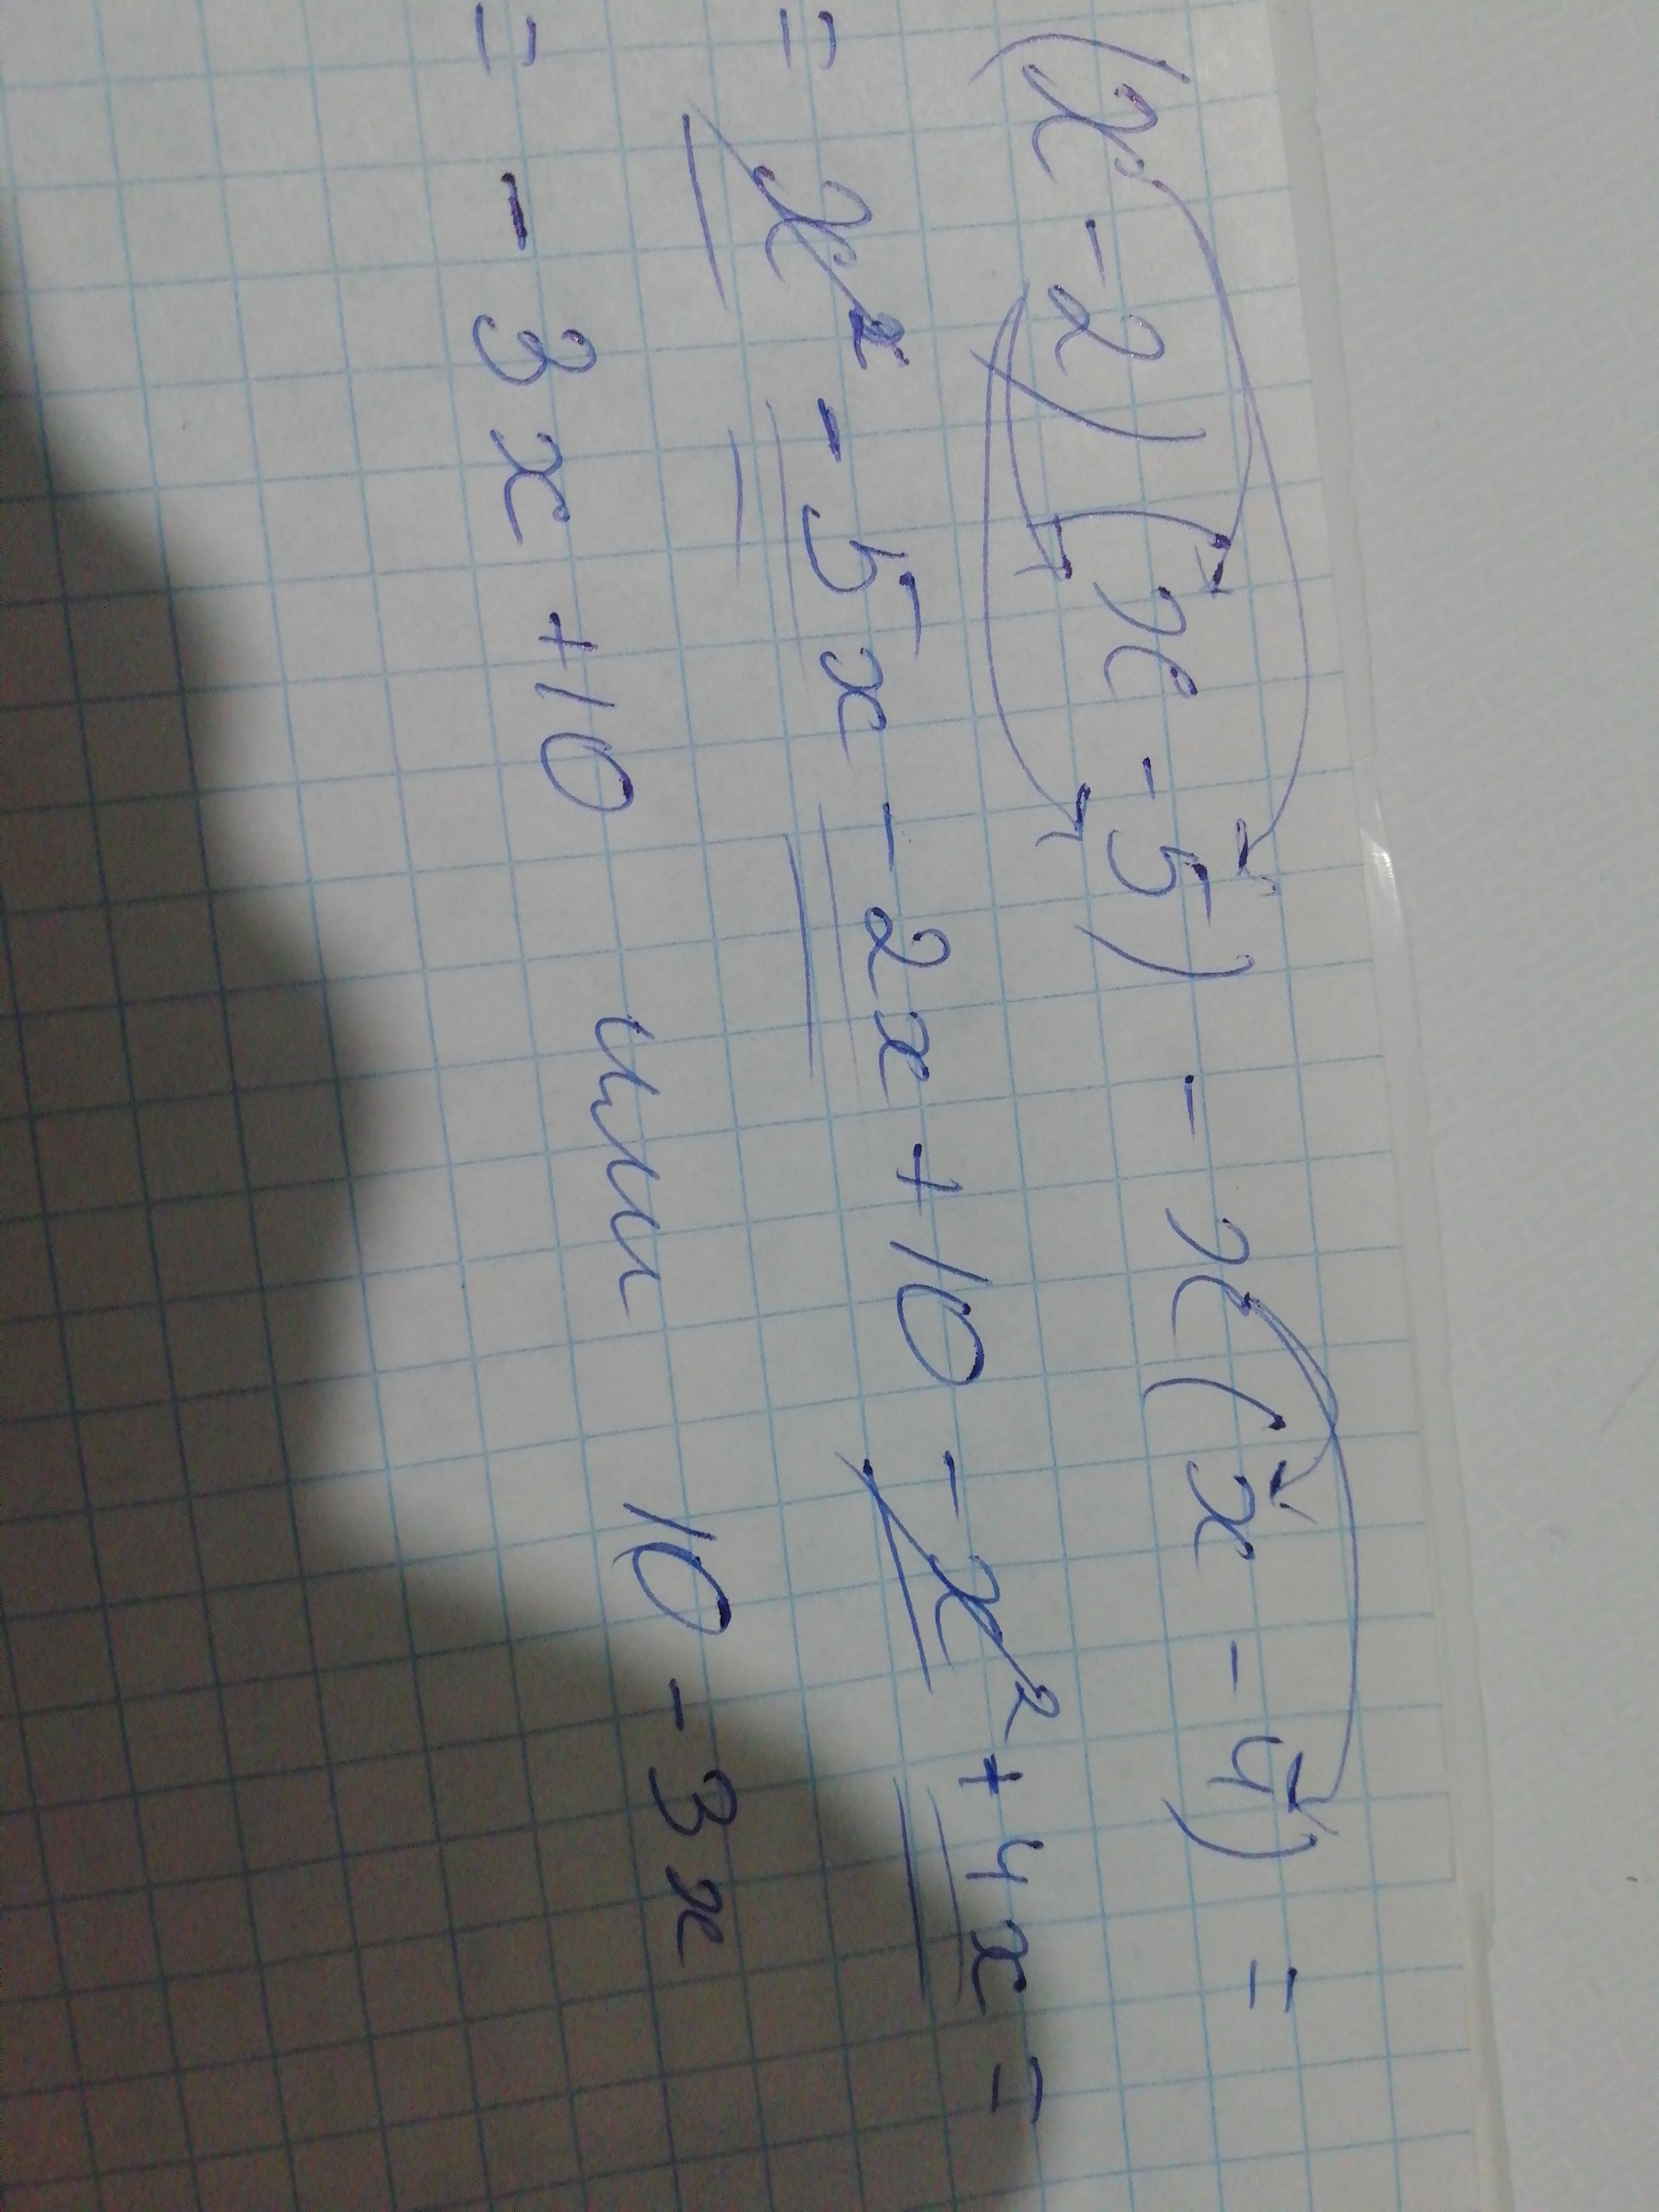 (x - 2)(x - 5) - x(x - 4) =
= x² - 5x - 2x + 10 - x² + 4x =
= - 3x + 10 или 10 - 3x